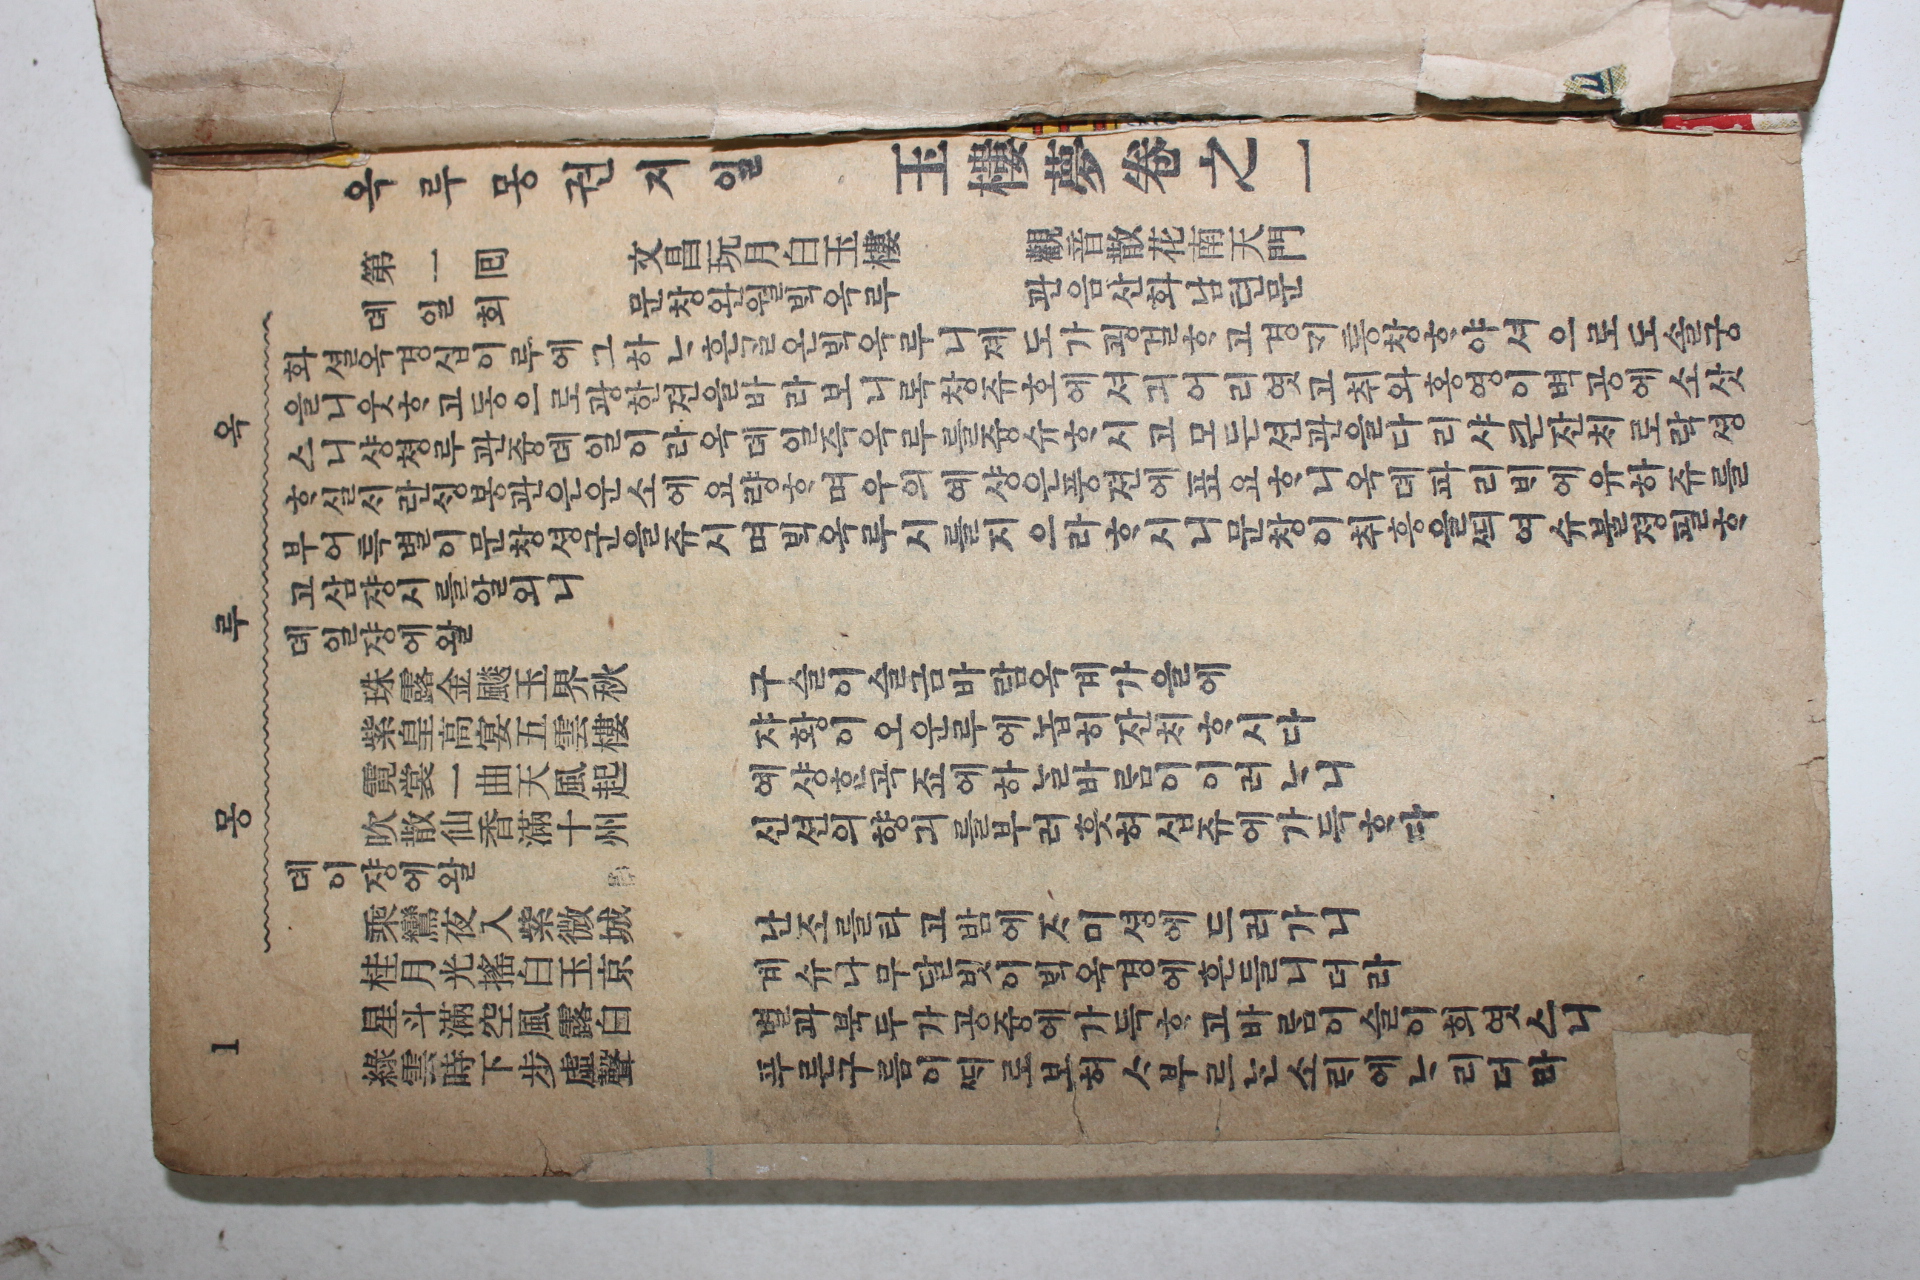 옥루몽 1
옥루몽권지일 玉樓夢卷之一
第一回 文昌玩月白玉樓 觀音散花南天門
뎨일회 문창완월ᄇᆡᆨ옥루 관음산화남텬문
화셜옥경십이루에그하ᄂᆞ흔ᄀᆞᆯ온ᄇᆡᆨ옥루니졔도가굉걸ᄒᆞ고경ᄀᆡ통창ᄒᆞ야셔으로도솔궁
을니웃ᄒᆞ고동으로광한젼을바라보니록창쥬호에셔긔어리엿고취와홍영이벽공에소삿
스니샹쳥루관즁뎨일이라옥뎨일즉옥루를즁슈ᄒᆞ시고모든션관을다리샤큰잔ᄎᆡ로락셩
ᄒᆞ실시란ᄉᆡᆼ봉관은운소에요량ᄒᆞ며우의예샹은풍젼에표요ᄒᆞ니옥뎨파리ᄇᆡ에유하쥬를
부어특별이문창셩군을쥬시며ᄇᆡᆨ옥루시를지으라ᄒᆞ시니문창이취흥을ᄯᅴ여슈불졍필ᄒᆞ
고삼쟝시를알외니
뎨일쟝에왈
珠露金飇玉界秋 구슬이슬금바람옥계가을에
紫皇高宴五雲樓 쟈황이오운루에놉히잔ᄎᆡᄒᆞ시다
霓裳一曲天風起 예샹ᄒᆞᆫ곡죠에하ᄂᆞᆯ바ᄅᆞᆷ이이러ᄂᆞ니
吹散仙香滿十州 신션의향긔를부러흣허십쥬에가득ᄒᆞ다
뎨이쟝에왈
乘鸞夜入紫微城 난조를타고밤에ᄌᆞ미셩에드러가니
桂月光搖白玉京 계슈나무달빗이ᄇᆡᆨ옥경에흔들니더라
星斗滿空風露白 별과북두가공즁에가득ᄒᆞ고바ᄅᆞᆷ이슬이희엿스니
綠雲時下步虛聲 푸른구름이ᄯᅢ로보허ᄉᆞ부르ᄂᆞᆫ소ᄅᆡ에ᄂᆞ리더라